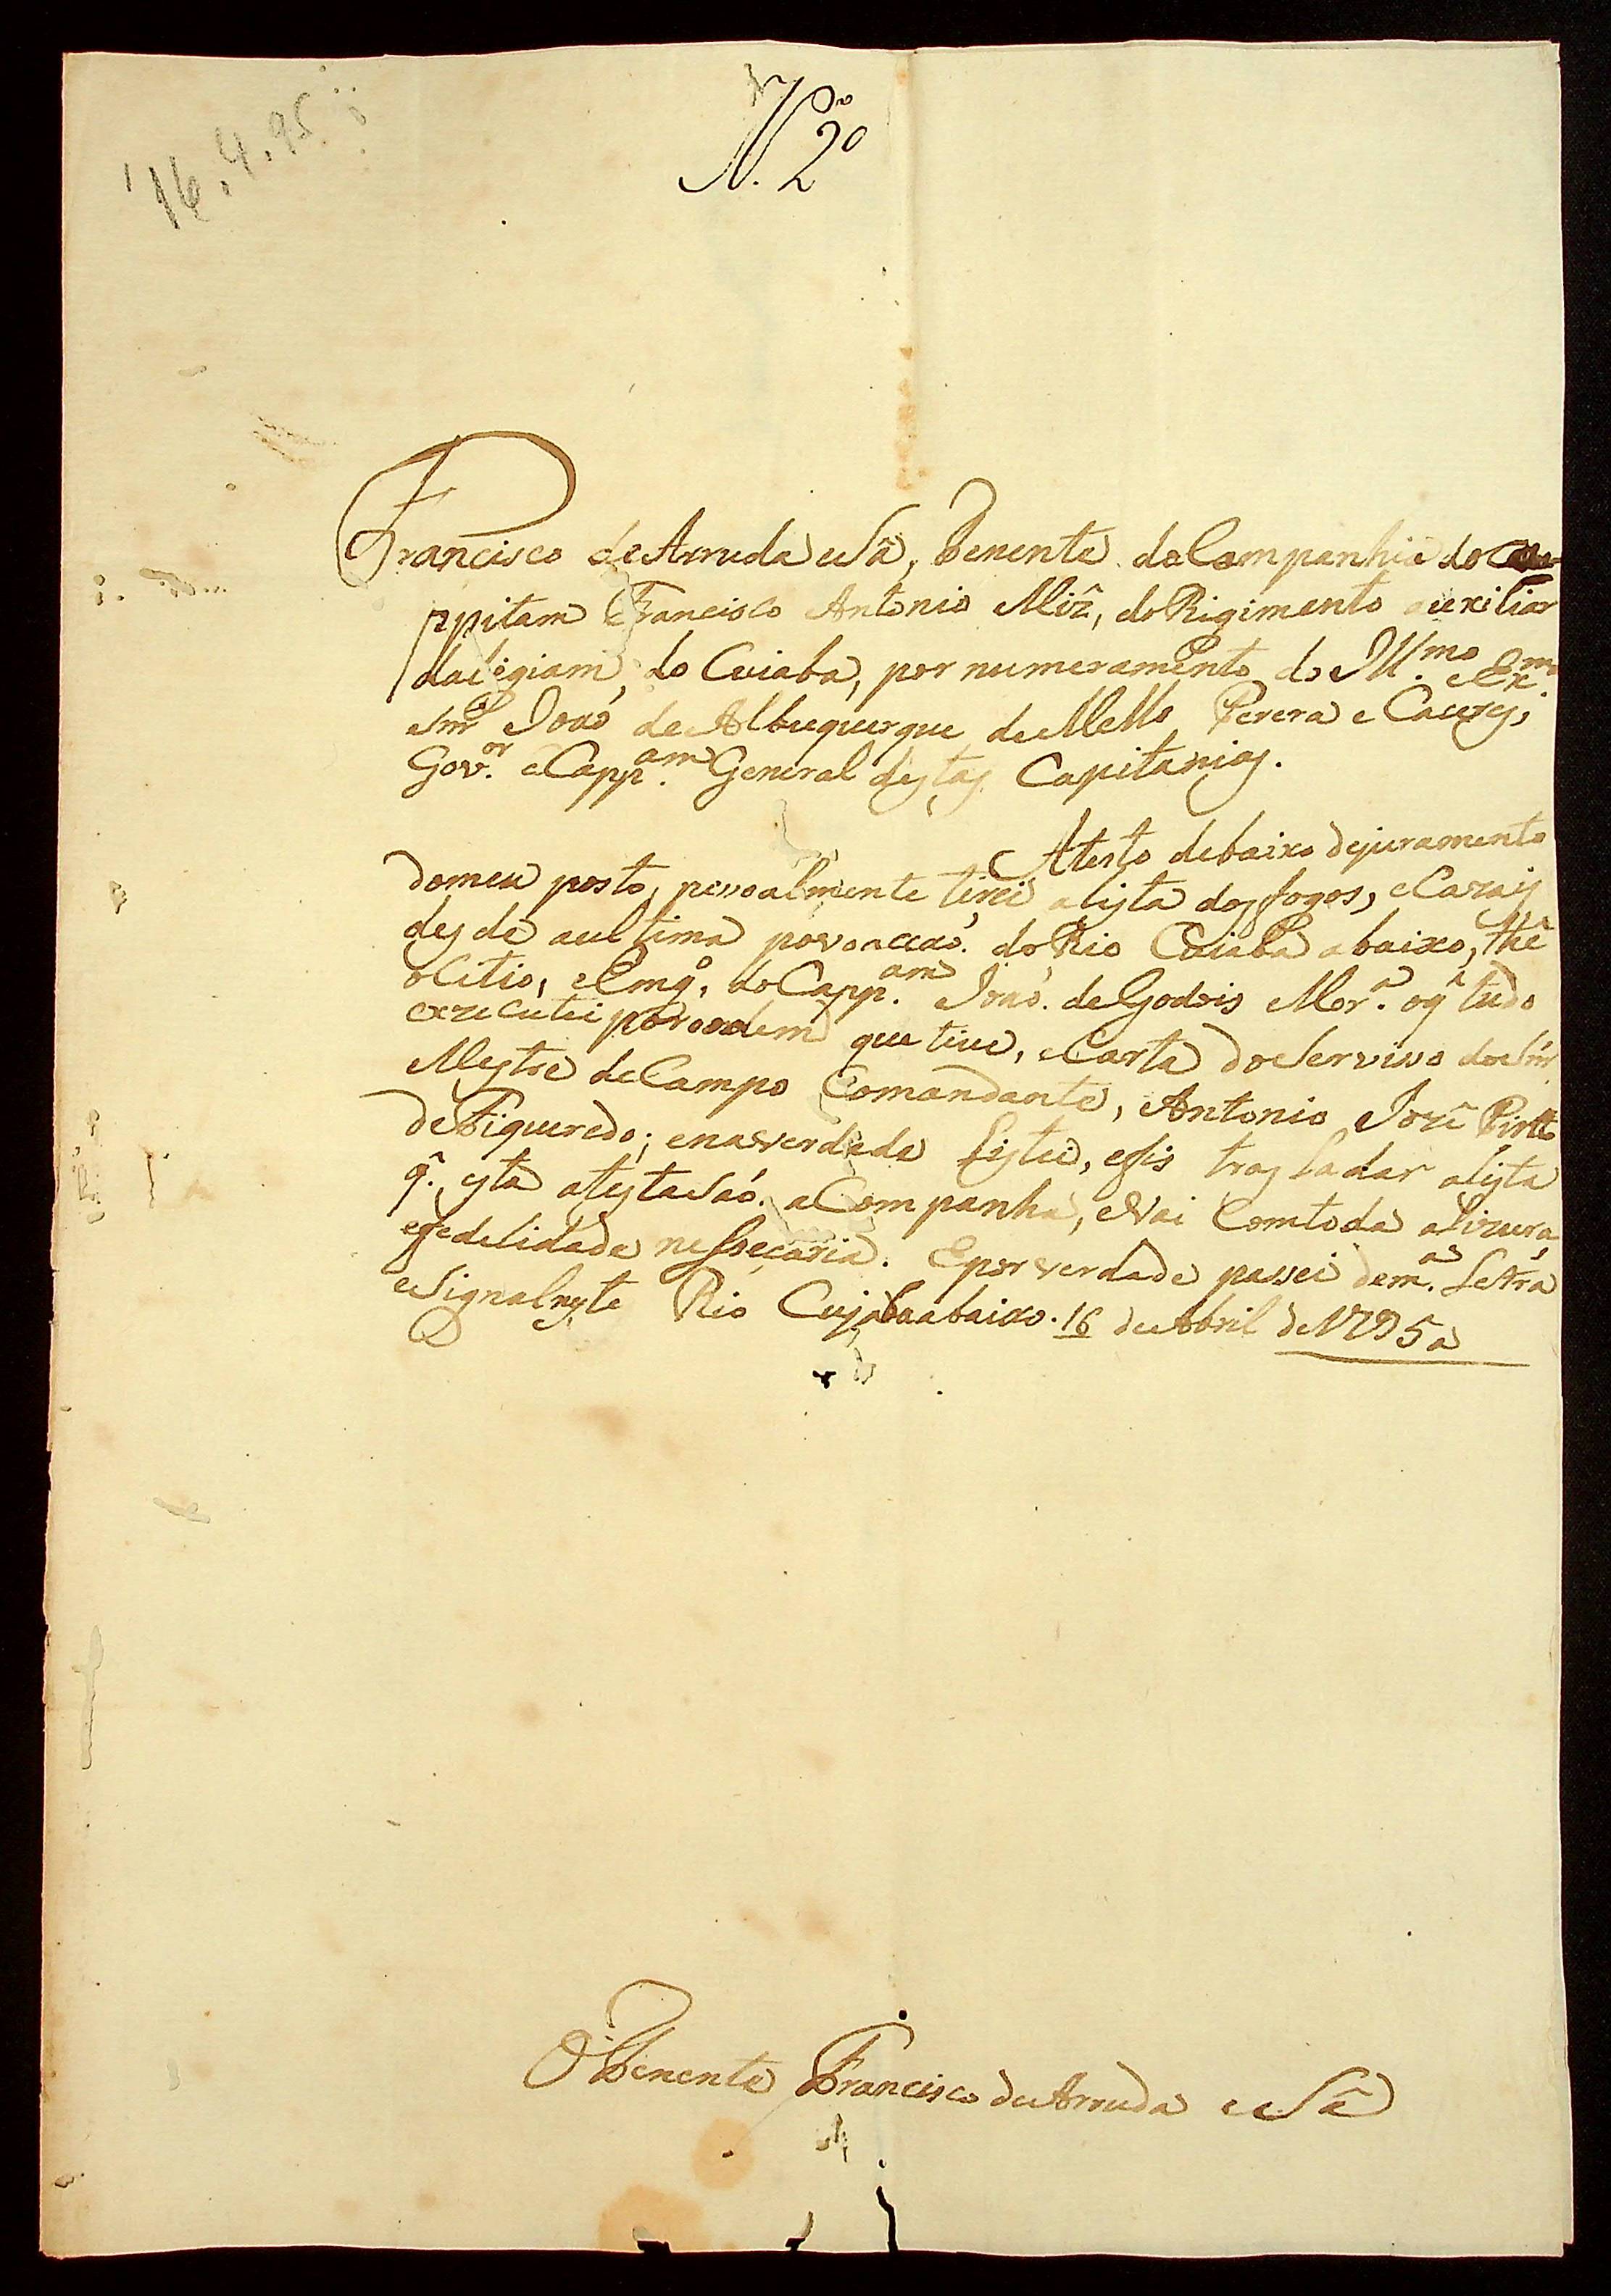 16.4.95
N. 2º
Francisco de Arruda e Sâ, Tenente da Companhia do Ca-
ppitam Francisco Antonio Miz̃, do Rigimento auxiliar
da legiam, do Cuiaba, por numeramento do Ill.mo e Ex.mo
Snr̃ Joaó de Albuquerque de Mello Perera e Caceres,
Gov.or e Capp.am General destas Capitanias.
Atesto debaixo de juramento
do meu posto, pesoalmente tirei a lista dos fogos, e Cazais
des de a ultima povoaccaó do Rio Cuiaba abaixo, thê
o Citio, e Emgº, do Capp.am Joaó de Godois Mor.ª o q̃ tudo
exzecutei por ordem que tive, e Carta do Serviso do Snr̃
Mestre de Campo Comandante, Antonio Jozê Pintto
de Figueredo; e na verdade listei, e fis trasladar a lista
q̃. esta atestasaó aCompanha, e Vai Com toda a lizura,
e fedelidade nesseçaria. E por verdade passei de m.ª Letra
e Signal neste Rio Cujaba abaixo. 16 de Abril de 1795 a
O Tenente Francisco de Arruda e Sâ